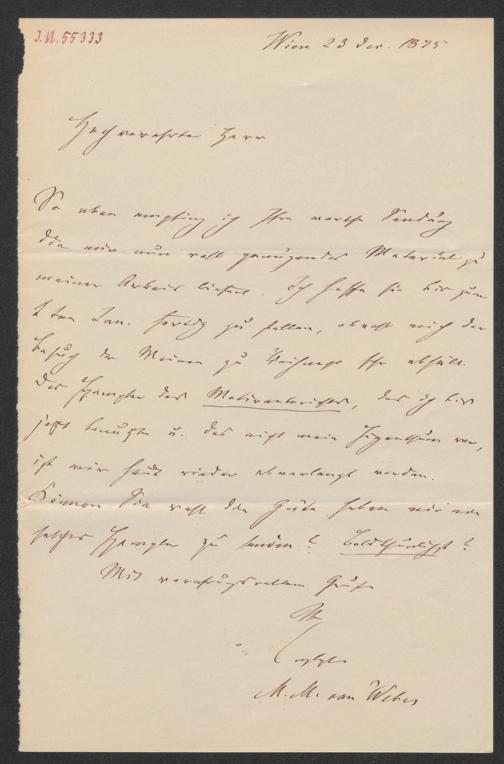 J.N. 55333
Wien 23 Dec. 1875
Hochverehrter Herr
So eben empfing ich Ihre werthe Sendung
die mir nun voll genügendes Material zu
meiner Arbeit liefert. Ich hoffe sie bis zum
1ten Jan. fertig zu stellen, obwohl mich der
Besuch der Meinen zu Weihnacht abhält.
Das Exemplar des Motivenberichtes, das ich bis
jetzt benutzte u. das nicht mein Eigenthum war,
ist mir heute wieder abverlangt worden.
Können Sie wohl die Güte haben mir ein
solches Exemplar zu senden? Baldthunlichst?
Mit verehrungsvollem Gruße
Ihr
M. M. von Weber